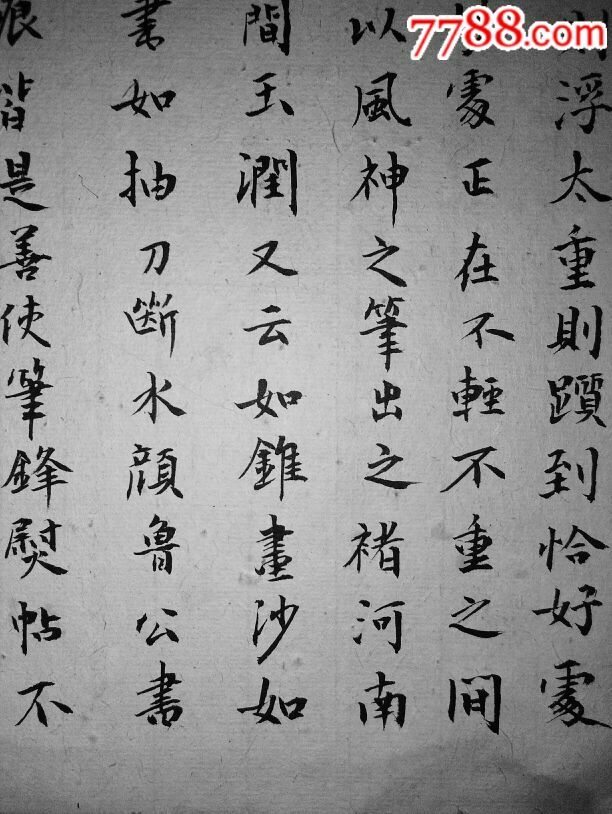 7788.com
則浮太重則躓到恰好處
處正在不輕不重之間
以風神之筆出之褚河南
間玉潤又云如錐畫沙如
書如抽刀斷水顏魯公書
痕皆是善使筆鋒熨帖不